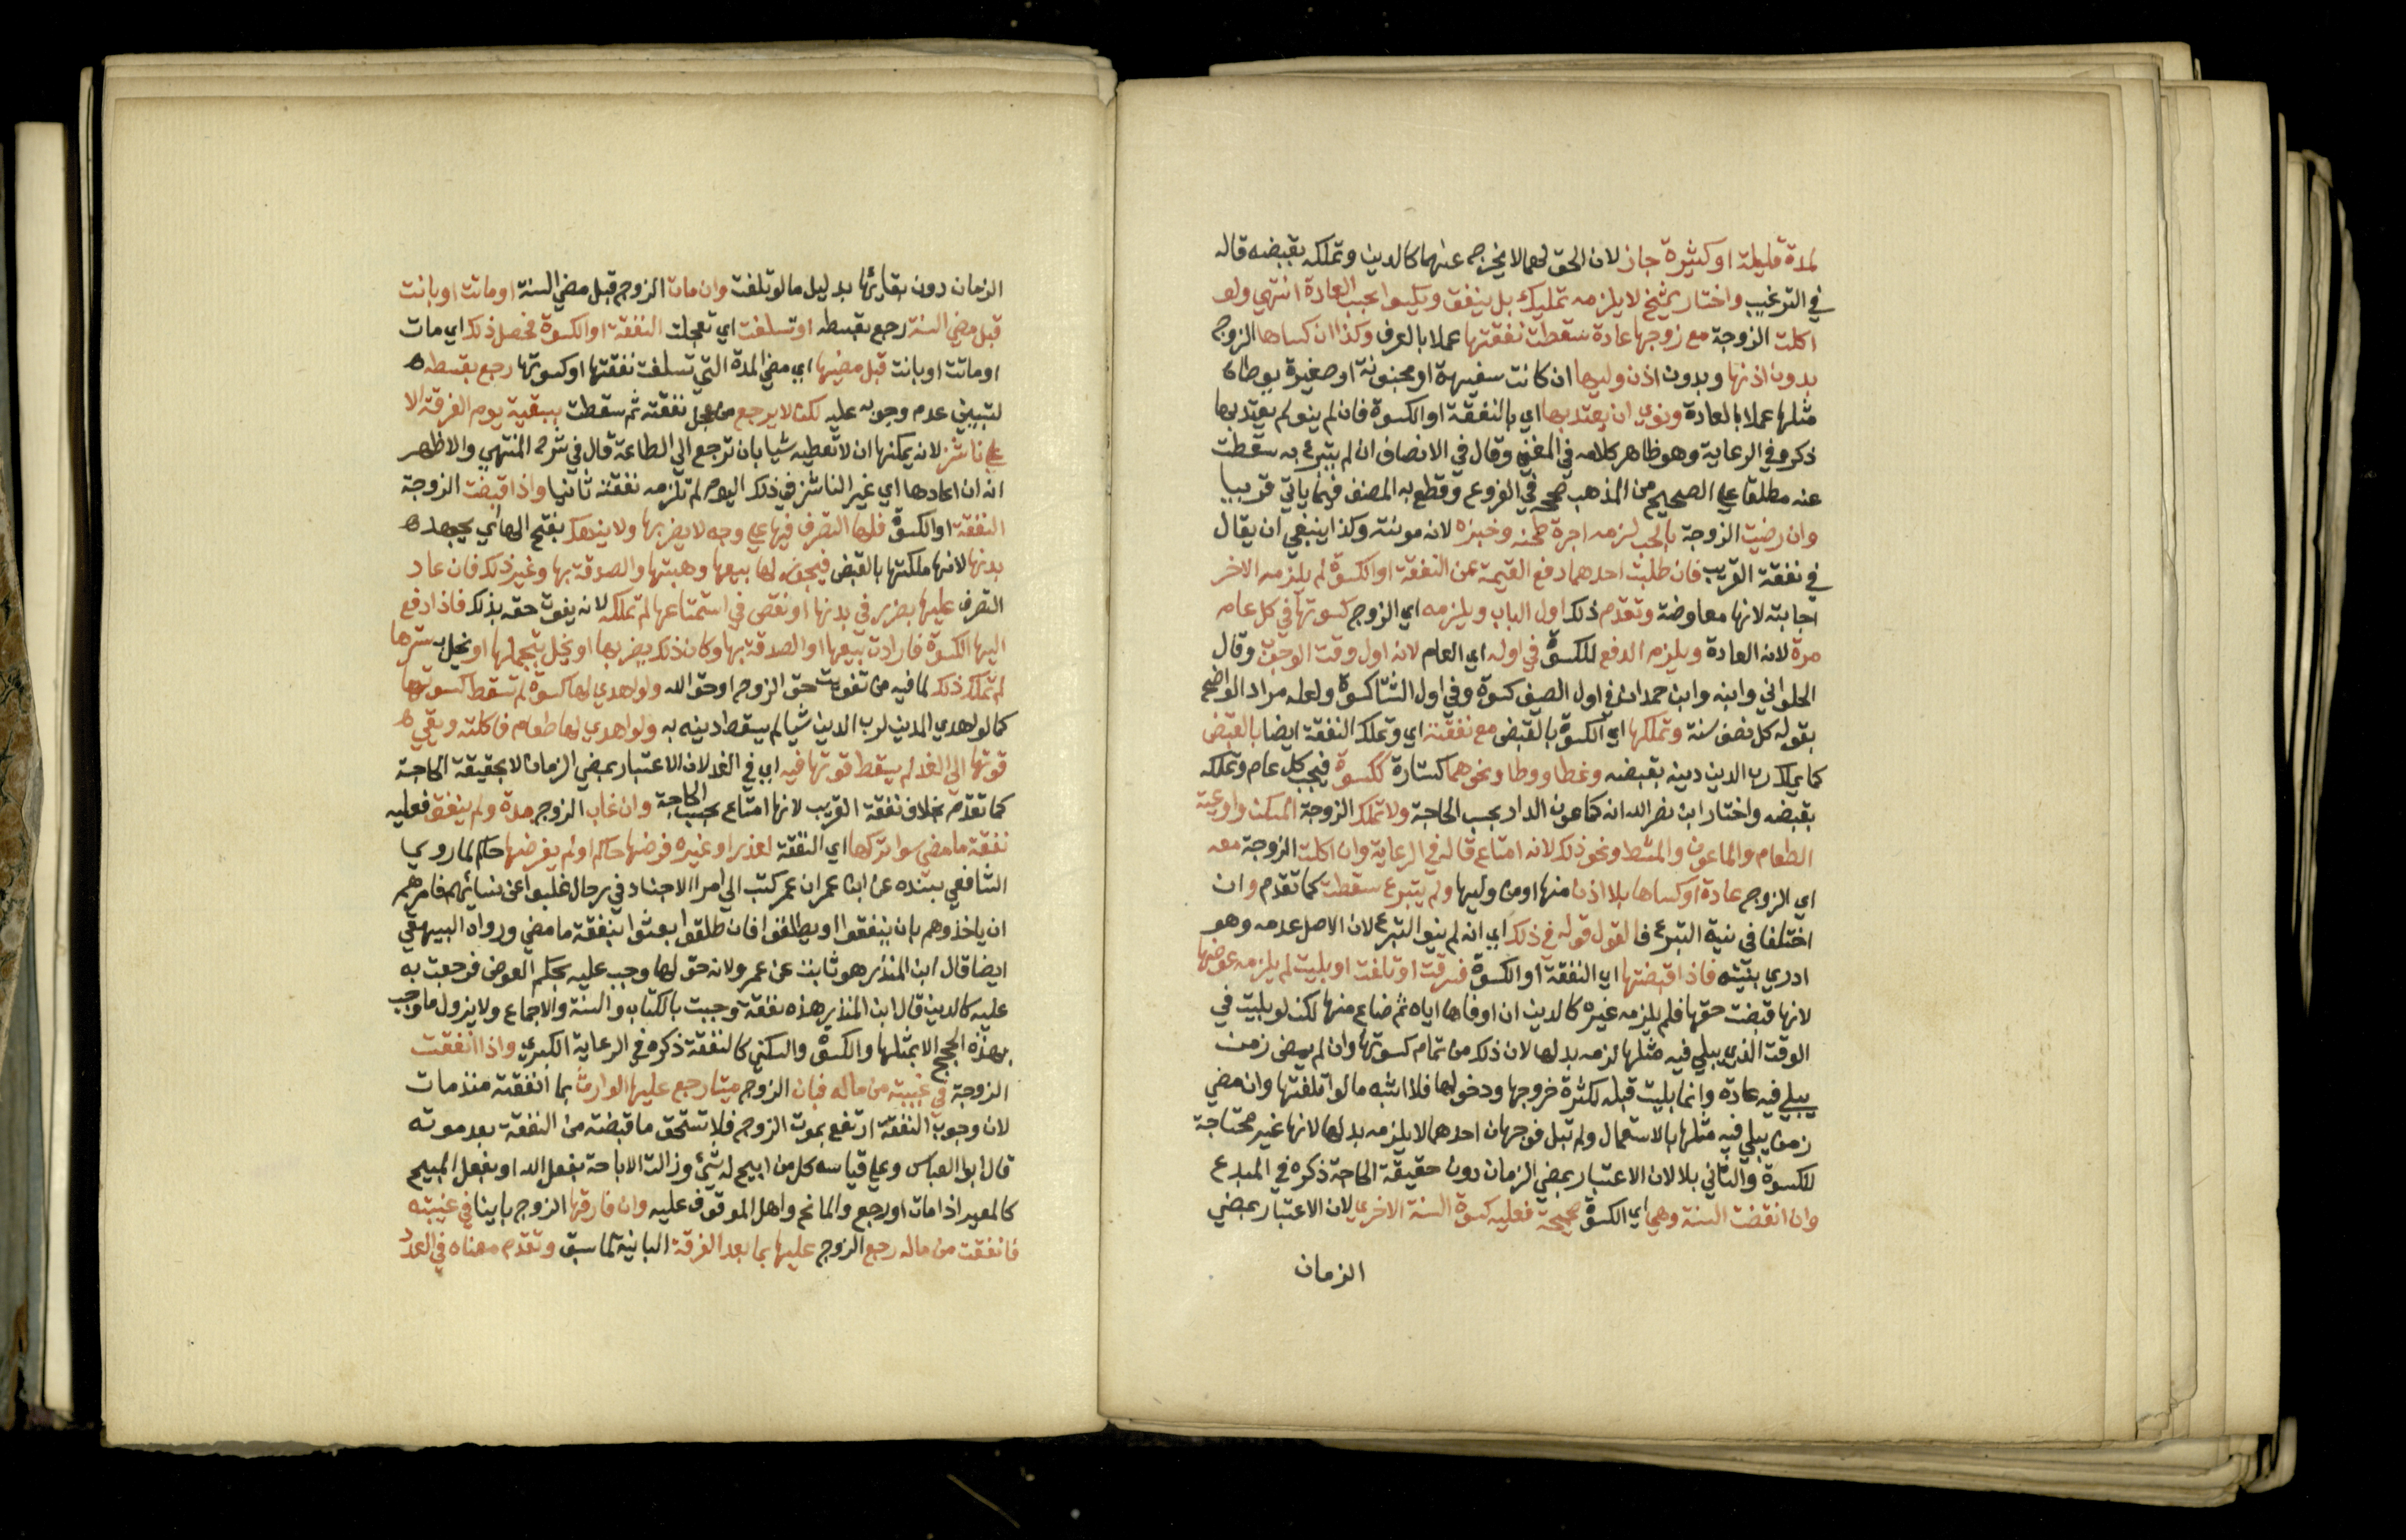 لمدة قليلة او كثيرة جاز لان الحق لهما لا يخرج عنهما كالدين وتملكه بقبضه قاله
في الترغيب واختار الشيخ لا يلزمه تمليك بل ينفق ويكسوا بحسب العادة انتهي ولو
اكلت الزوجة مع زوجها عادة سقطت نفقتها عملا بالعرف وكذا ان كساها الزوج
بدون اذنها وبدون اذن وليها ان كانت سفيهة او مجنونة او صغيرة يوطا
مثلها عملا بالعادة ونوي ان يعتد بها اي بالنفقة او الكسوة فان لم ينو لم يعتد بها
ذكره في الرعاية وهو ظاهر كلامه في المغني وقال في الانصاف ان لم يتبرع به سقطت
عنه مطلقا علي الصحيح من المذهب صححه في الفروع وقطع به المصنف فيما ياتي قريبا
وان رضيت الزوجة بالحب لزمه اجرة طحنه وخبزه لانه مونته وكذا ينبغي ان يقال
في نفقة القريب فان طلبت احدهما دفع القيمة عن النفقة او الكسوة لم يلزمه الاخر
اجابته لانها معاوضة وتقدم ذلك اول الباب ويلزمه اي الزوج كسوتها في كل عام
مرة لانه العادة ويلزم الدفع للكسوة في اوله اي العام لانه اول وقت الوجوب وقال
الحلواني وابنه وابن حمدان في اول الصيف كسوة وفي اول الشتا كسوة ولعله مراد الواضح
بقوله كل نصف سنة وتملكها اي الكسوة بالقبض مع نفقة اي وتملك النفقة ايضا بالقبض
كما يملك رب الدين دينه بقبضه وغطا ووطا ونحوهما كستارة ككسوة فيجب كل عام وتملكه
بقبضه واختار ابن نصر الله انه كماعون الدار بحسب الحاجة ولا تملك الزوجة المسكن واوعية
الطعام والماعون والمشط ونحو ذلك لانه امتاع قاله في الرعاية وان اكلت الزوجة معه
اي الزوج عادة او كساها بلا اذن منها او من وليها ولم يتبرع سقطت كما تقدم وان
اختلفا في نية التبرع فالقول قوله في ذلك اي انه لم ينو التبرع لان الاصل عدمه وهو
ادري بنيته فاذا قبضتها اي النفقة او الكسوة فسرقت او تلفت او بليت لم يلزمه عوضها
لانها قبضت حقها فلم يلزمه غيره كالدين ان اوفاها اياه ثم ضاع منها لكن لو بليت في
الوقت الذي يبلي فيه مثلها لزمه بدلها لان ذلك من تمام كسوتها وان لم يمض زمن
يبلي فيه عادة وانما بليت قبله لكثرة خروجها ودخولها فلا اشبه ما لو اتلفتها وان مضي
زمن يبلي فيه مثلها بالاستعمال ولم تبل فوجهان احدهما لا يلزمه بدلها لانها غير محتاجة
للكسوة والثاني بلا لان الاعتبار بمضي الزمان دون حقيقة الحاجة ذكره في المبدع
وان انقضت السنة وهي اي الكسوة صحيحة فعليه كسوة السنة الاخري لان الاعتبار بمضي
الزمان
الزمان دون بقائها بدليل ما لو تلفت وان مات الزوج قبل مضي السنة او ماتت او بانت
قبل مضي السنة رجع بقسطه او تسلفت اي تعجلت النفقة او الكسوة فحصل ذلك اي مات
او ماتت او بانت قبل مضيها اي مضي المدة التي تسلفت نفقتها او كسوتها رجع بقسطه
لتبين عدم وجوبه عليه لكن لا يرجع من عجل نفقته ثم سقطت ببقية يوم الفرقة الا
علي ناشز لانه يمكنها ان لا تعطيه شيا بان ترجع الي الطاعة قال في شرح المنتهي والاظهر
انه ان اعادها اي غير الناشز في ذلك اليوم لم تلزمه نفقته ثانيا واذا قبضت الزوجة
النفقة او الكسوة فلها التصرف فيها علي وجه لا يضر بها ولا ينهك بفتح الهاء اي يجهد
بدنها لانها ملكتها بالقبض فيجوز لها بيعها وهبتها والصدقة بها وغير ذلك فان عاد
التصرف عليها بضرر في بدنها او نقص في استمتاعها لم تملكه لانه يفوت حقه بذلك فاذا دفع
اليها الكسوة فارادت بيعها او الصدقة بها وكان ذلك يضر بها او يخل بتجملها او يخل بسترها
لم تملك ذلك لما فيه من تفويت حق الزوج او حق الله ولو اهدي لها كسوة لم تسقط كسوتها
كما لو اهدي المدين لرب الدين شيا لم يسقط دينه به ولو اهدي لها طعام فاكلته وبقي
قوتها الي الغد لم يسقط قوتها فيه اي في الغد لان الاعتبار بمضي الزمان لا بحقيقة الحاجة
كما تقدم بخلاف نفقة القريب لانها امتاع بحسب الحاجة وان غاب الزوج مدة ولم ينفق فعليه
نفقة ما مضي سوا تركها اي النفقة لعذر او غيره فرضها حاكم او لم يفرضها حاكم لما روي
الشافعي بسنده عن ابن عمر ان عمر كتب الي امرا الاجناد في رجال غلبوا عن نسائهم فامرهم
ان ياخذوهم بان ينفقوا او يطلقوا فان طلقوا بعثوا بنفقة ما مضي ورواه البيهقي
ايضا قال ابن المنذر هو ثابت عن عمر ولانه حق لها وجب عليه بحكم العوض فرجعت به
عليه كالدين قال ابن المنذر هذه نفقة وجبت بالكتاب والسنة والاجماع ولا يزول ما وجب
بهذه الحجج الا بمثلها والكسوة والسكني كالنفقة ذكره في الرعاية الكبري واذا انفقت
الزوجة في غيبته من ماله فبان الزوج ميتا رجع عليها الوارث بما انفقته منذ مات
لان وجوب النفقة ارتفع بموت الزوج فلا تستحق ما قبضته من النفقة بعد موته
قال ابوا العباس وعلي قياسه كل من ابيح له شئ وزالت الاباحة بفعل الله او بفعل المبيح
كالمعير اذا مات او رجع والمانح واهل الموقوف عليه وان فارقها الزوج باينا في غيبته
فانفقت من ماله رجع الزوج عليها بما بعد الفرقة الباينة لما سبق وتقدم معناه في العدد